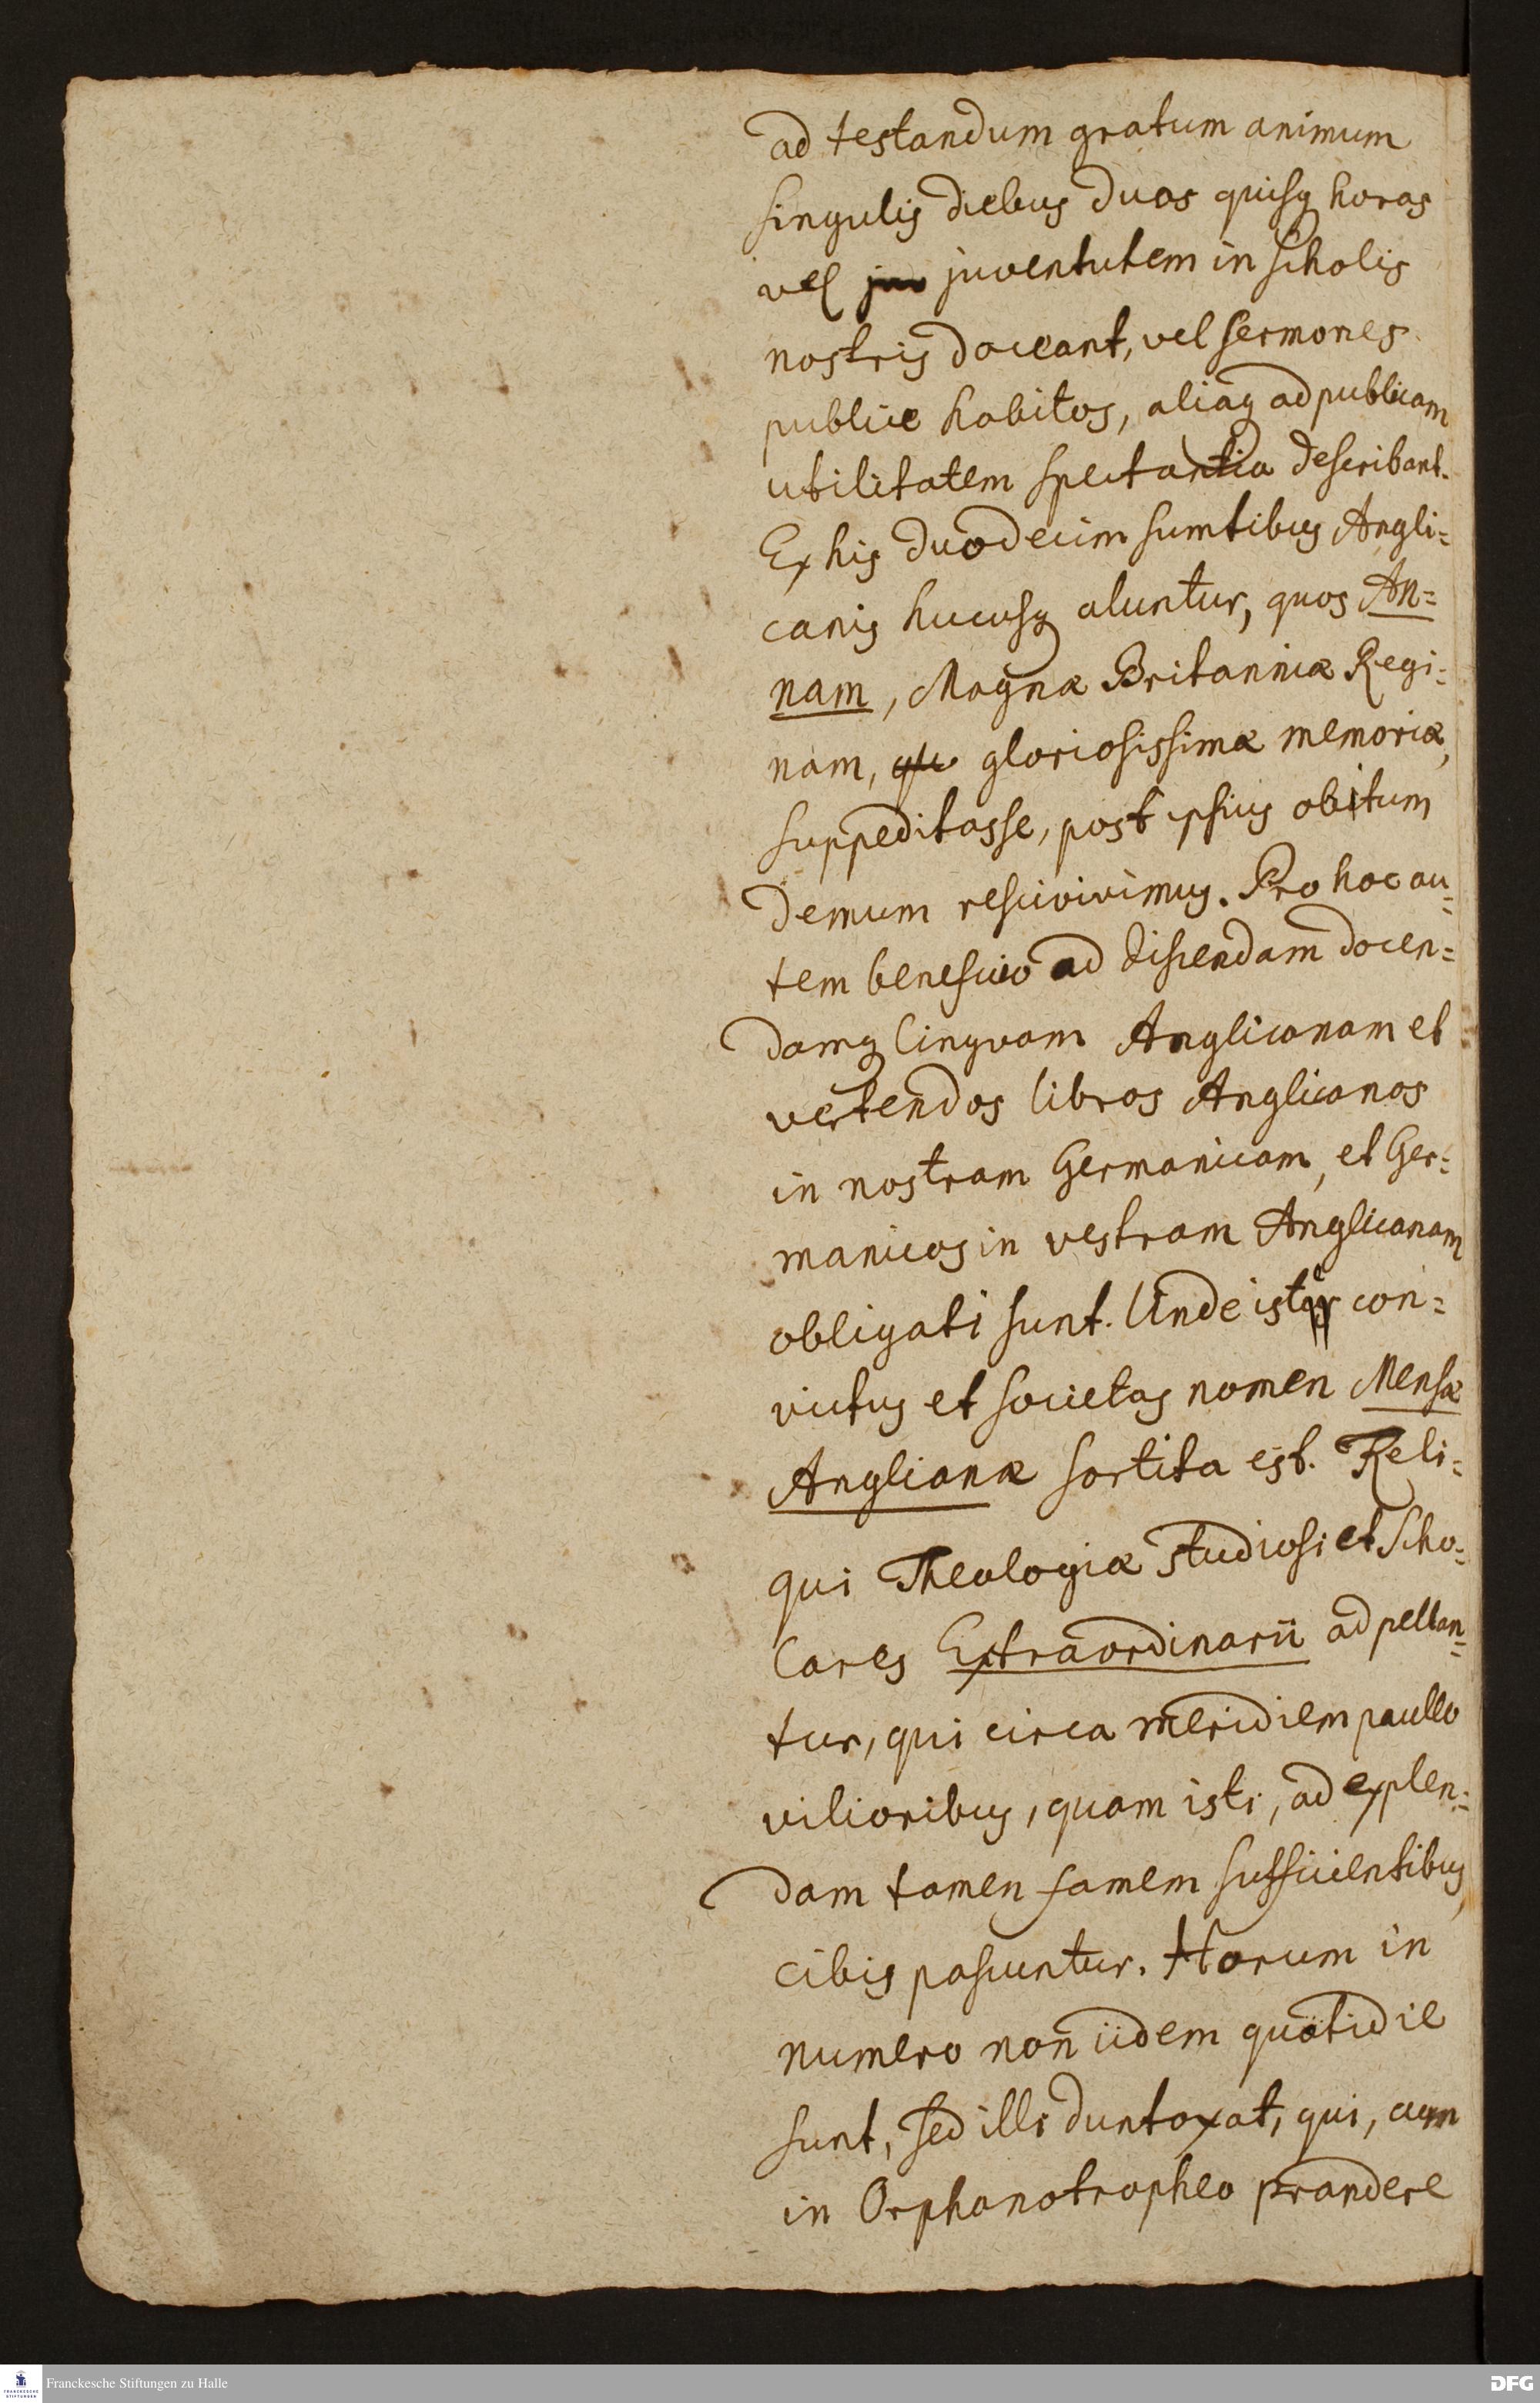 ad testandum gratum animum
singulis diebus duas quisq horas
vel juv juventutem in scholis
nostris doceant, vel sermones
publice habitos, aliaq ad publicam
utilitatem spectantia describant.
Ex his duodecim sumtibus Angli=
canis hucusq aluntur, quos An=
nam, Magnæ Britanniæ Regi=
nam, gloriosissimæ memoriæ,
suppeditasse, post ipsius obitum
demum rescivimus. Pro hoc au=
tem beneficio ad discendam docen=
damq lingvam Anglicanam et
vertendos libros Anglicanos
in nostram Germanicam, et Ger=
manicos in vestram Anglicanam
obligati sunt. Unde con=
victus et societas nomen Mensæ
Anglianæ sortita est. Reli=
qui Theologiæ studiosi et Scho=
lares Extraordinarii adpellan=
tur, qui circa meridiem paullo
vilioribus, quam isti, ad explen=
dam tamen famem sufficientibus,
cibis pascuntur. Horum in
numero non iidem quotidie
sunt, sed illi duntaxat, qui, cum
in Orphanotropheo prandere
Franckesche Stiftungen zu Halle
FRANCKESCHE
STIFTUNGEN
DFG